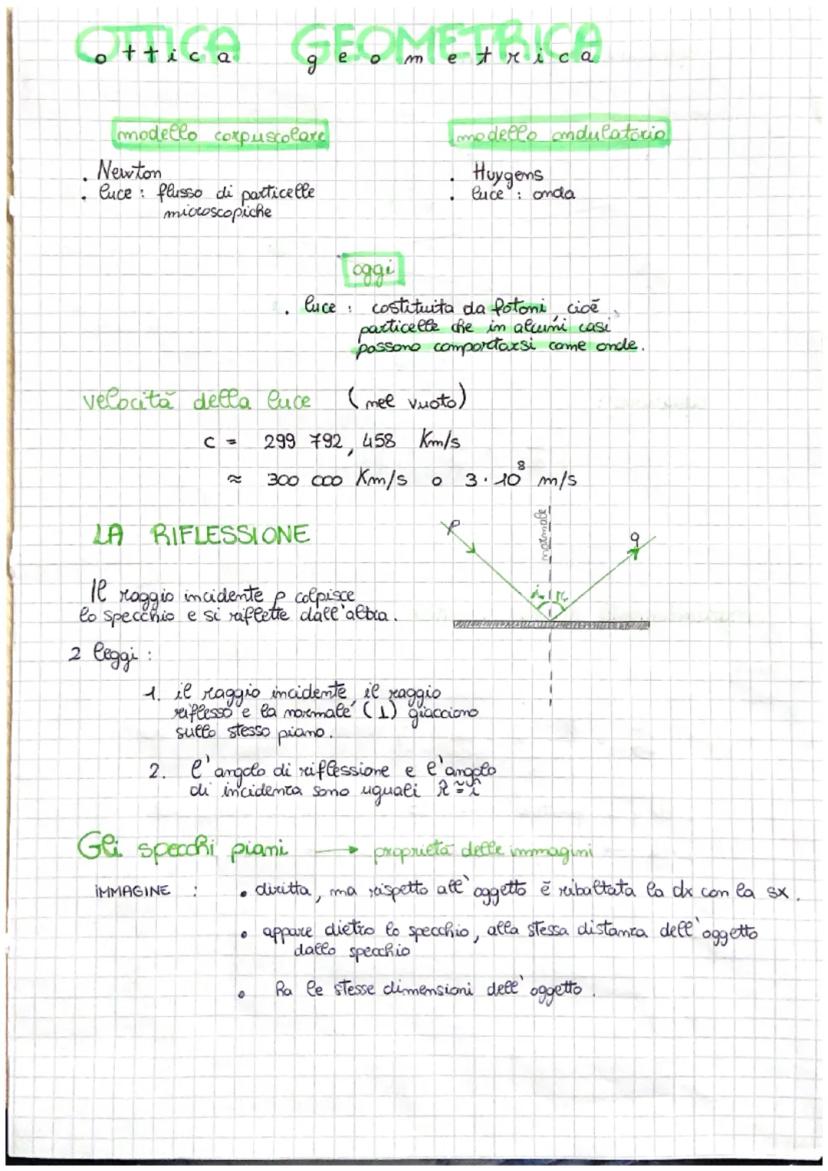 OTTICA GEOMETRICA
ottica geometrica
modello corpuscolare
modello ondulatorio
. Newton
. luce : flusso di particelle
microscopiche
. Huygens
. luce : onda
oggi
. luce : costituita da fotoni, cioè
particelle che in alcuni casi
possono comportarsi come onde.
velocità della luce (nel vuoto)
c = 299 792,458 Km/s
≈ 300 000 Km/s o 3·10⁸ m/s
LA RIFLESSIONE
p
normale
q
i
r
Il raggio incidente p colpisce
lo specchio e si riflette dall'altra.
2 leggi :
1. il raggio incidente, il raggio
riflesso e la normale (⊥) giacciono
sullo stesso piano.
2. l'angolo di riflessione e l'angolo
di incidenza sono uguali r̂ ≅ î
Gli specchi piani → proprietà delle immagini
IMMAGINE : • diritta, ma rispetto all'oggetto è ribaltata la dx con la sx.
• appare dietro lo specchio, alla stessa distanza dell'oggetto
dallo specchio
• ha le stesse dimensioni dell'oggetto.